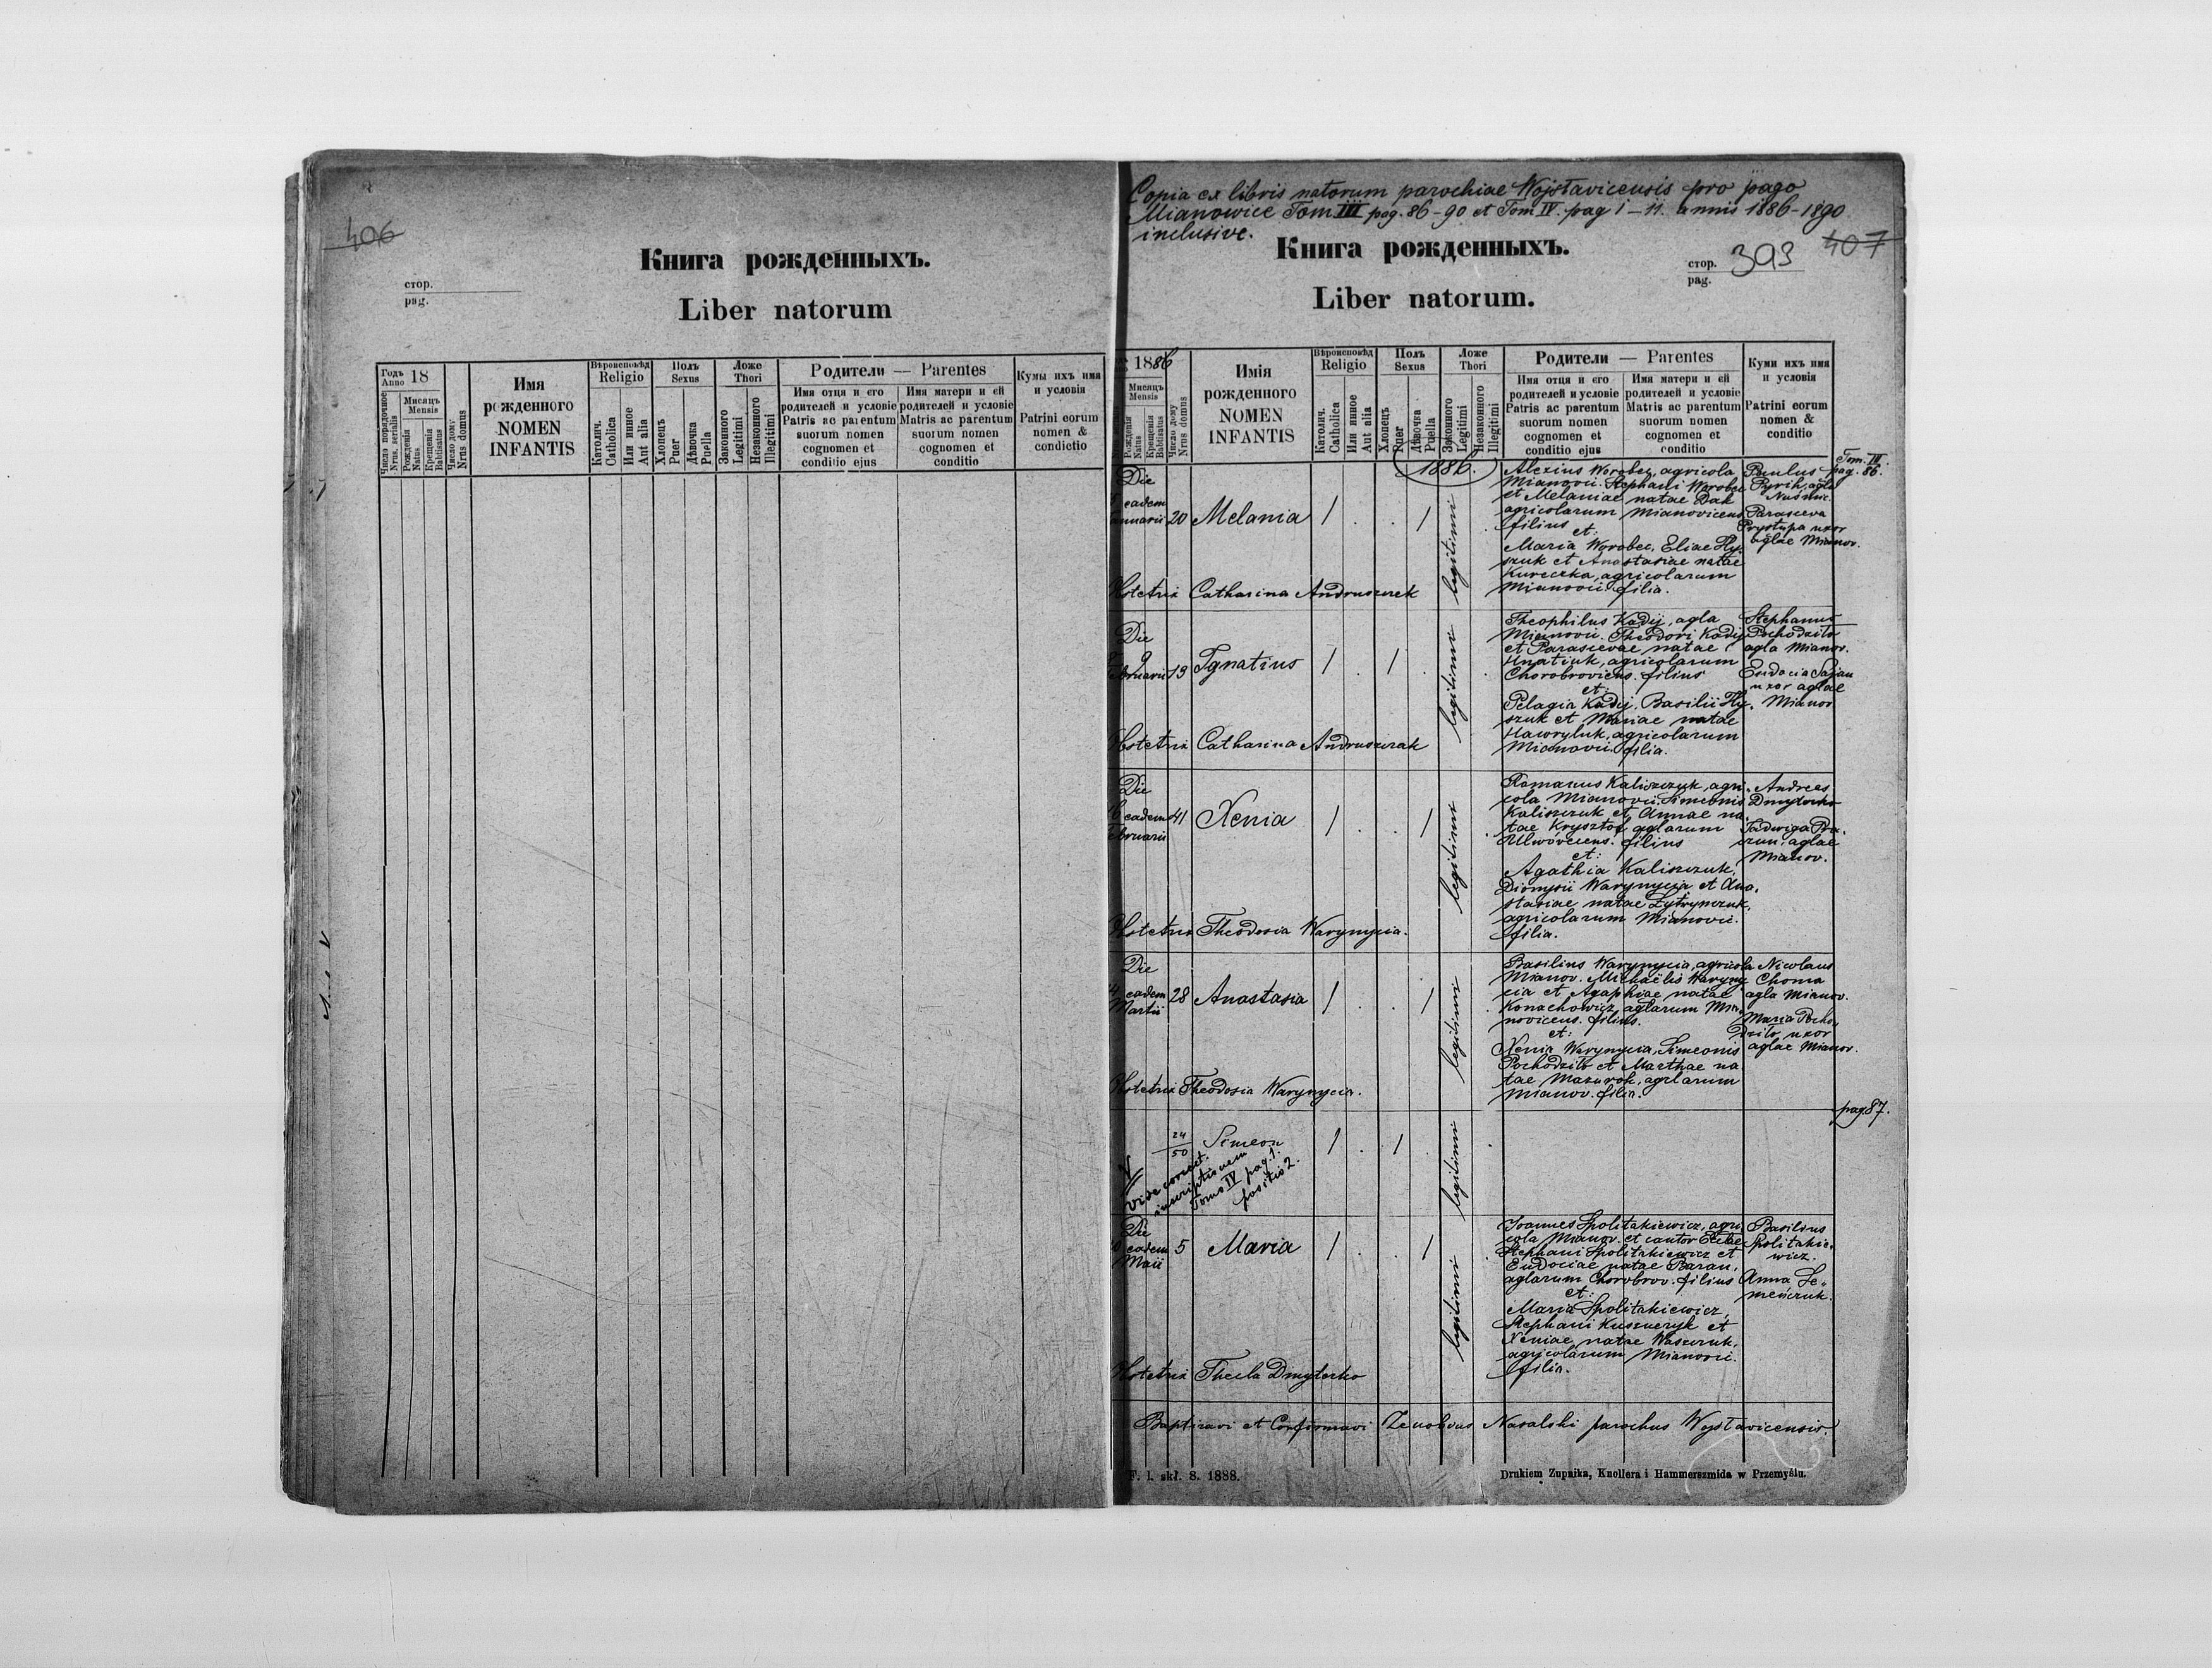 406
Книга рожденныхъ.
стор.
pag.
Liber natorum
Годъ Anno 18
Число порядочное Nrus. serialis
Мисяцъ Mensis
Рожденія Natus
Крещенія Babtisatus
Число дому Nrus domus
Имя рожденного NOMEN INFANTIS
Вѣроисповѣд Religio
Католич. Catholica
Или инное Aut alia
Полъ Sexus
Хлопецъ Puer
Дѣвочка Puella
Ложе Thori
Законного Legitimi
Незаконного Illegitimi
Родители — Parentes
Имя отця и его родителей и условіе
Patris ac parentum suorum nomen cognomen et conditio ejus
Имя матери и ей родителей и условіе
Matris ac parentum suorum nomen cognomen et conditio
Кумы ихъ имя и условія
Patrini eorum nomen & condictio
Copia ex libris natorum parochiae Wojsławicensis pro pago
Mianowice Tom III pag. 86-90 et Tom IV. pag 1-11. annis 1886-1890
inclusive.
Книга рожденныхъ.
стор. 393 407
pag.
Liber natorum.
1886
Мисяцъ Mensis
Рожденія Natus
Крещенія Babtisatus
Число дому Nrus domus
Имія рожденного NOMEN INFANTIS
Вѣроисповѣд Religio
Католич. Catholica
Или инное Aut alia
Полъ Sexus
Хлопецъ Puer
Дѣвочка Puella
Ложе Thori
Законного Legitimi
Незаконного Illegitimi
Родители — Parentes
Имя отця и его родителей и условіе
Patris ac parentum suorum nomen cognomen et conditio ejus
Имя матери и ей родителей и условіе
Matris ac parentum suorum nomen cognomen et conditio
Куми ихъ имя и условія
Patrini eorum nomen & conditio
1886.
Tom. III
pag. 86.
Die
eadem
anuarii 20 Melania 1 . . 1 legitimi
Alexius Worobec, agricola
Mianovii. Stephani Worobec
et Melaniae natae Dak
agricolarum Mianovicens.
filius
et:
Maria Worobec, Eliae Hy-
szuk et Anastasiae natae
Kureczka, agricolarum
Mianovii filia.
Paulus
Pyrih, agla
Parasceva
Prystupa uxor
aglae Mianov.
Obstetrix Catharina Andruszczek
Die
9
ebruarii 13 Ignatius 1 . 1 . legitimi
Theophilus Kadij, agla
Mianovii. Theodori Kadij
et Parascevae natae
Hnatiuk, agricolarum
Chorobrovicens. filius
et:
Pelagia Kadij, Basilii Hy-
szuk et Mariae natae
Hawryluk, agricolarum
Mianovii filia.
Stephanus
Pochodziło
agla Mianov.
Eudocia Sajan
uxor aglae
Mianov
Obstetrix Catharina Andruszczak
Die
16 eadem
ebruarii 41 Xenia 1 . . 1 legitimi
Romanus Kaliszczuk, agri-
cola Mianovii. Simeonis
Kaliszczuk et Annae na-
tae Krysztof, aglarum
filius
et:
Agathia Kaliszczuk,
Dionysii Warynycia et Ana-
stasiae natae Żytynczuk,
agricolarum Mianovii.
filia.
Andreas
Dmyterko
aglae
Mianov.
Obstetrix Theodosia Warynycia.
Die
eadem
Martii 28 Anastasia 1 . . 1 legitimi
Basilius Warynycia, agricola
Mianov. Michaëlis Waryny-
cia et Agaphiae natae
Konachowicz, aglarum Mia-
novicens. filius.
et:
Xenia Warynycia, Simeonis
Pochodziło et Marthae na-
tae Mazurok, aglarum
Mianov. filia.
Nicolaus
Choma
agla Mianov.
Maria Pocho-
dziło uxor
aglae Mianov.
Obstetrix Theodosia Warynycia.
pag. 87.
24/50 Simeon 1 . 1 . legitimi
Vide correct.
inscriptionem
Tomo IV pag. 1.
positio 2.
Die
eadem
Maii 5 Maria 1 . . 1 legitimi
Joannes Spolitakiewicz, agri-
cola Mianov. et cantor Eccl.
Stephani Spolitakiewicz et
Eudociae natae Baran,
aglarum Chorobrov. filius
et:
Maria Spolitakiewicz,
Stephani Kuszneryk et
Xeniae natae Waszczuk,
agricolarum Mianovii.
filia.
Basilius
Spolitakie-
wicz.
Anna Se-
meńczuk.
Obstetrix Thecla Dmyterko
Baptizavi et Confirmavi Zenobius Nasalski parochus Wojsławicensis.
F. l. skł. 8. 1888.
Drukiem Żupnika, Knollera i Hammerszmida w Przemyślu.